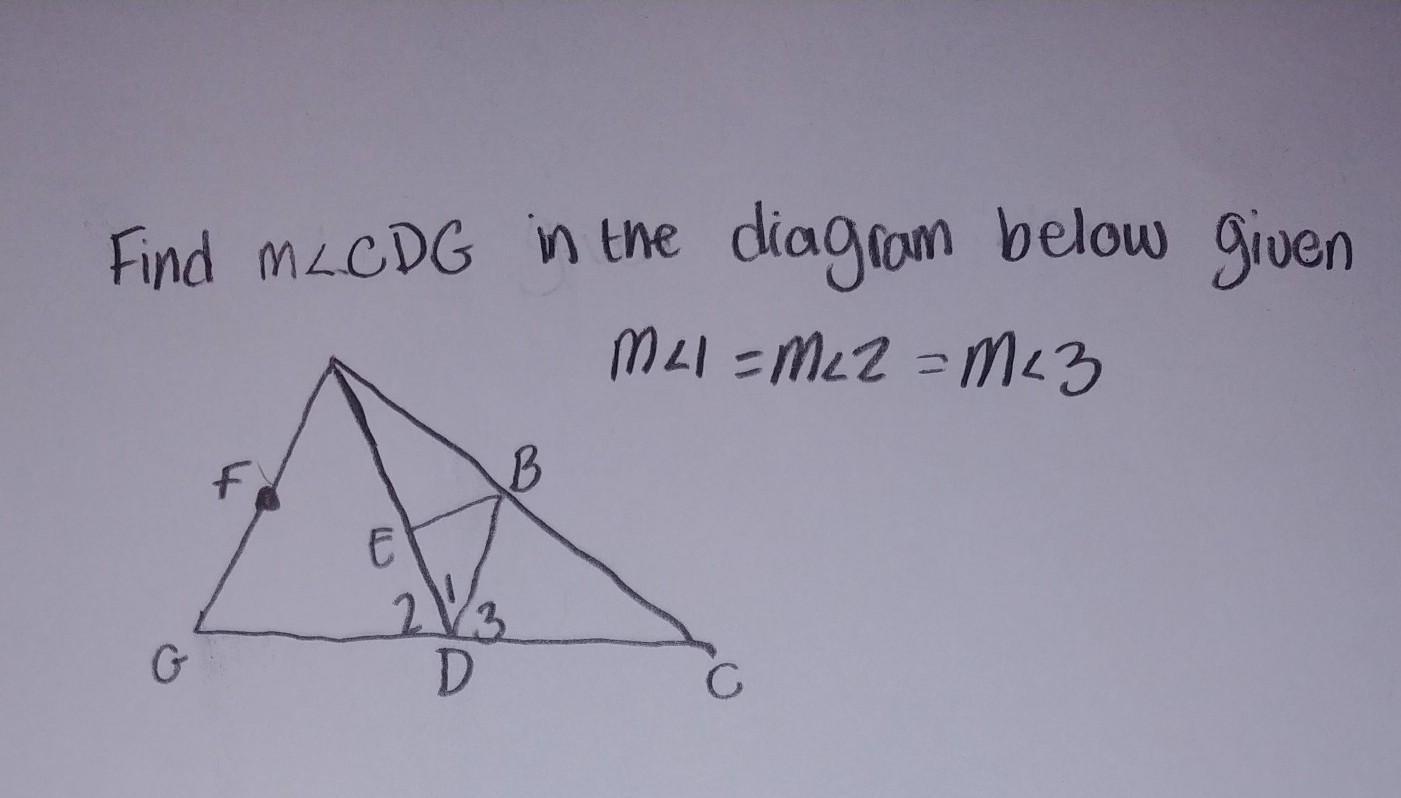 Find m∠CDG in the diagram below given
m∠1 = m∠2 = m∠3
F
B
E
2 1 3
G
D
C